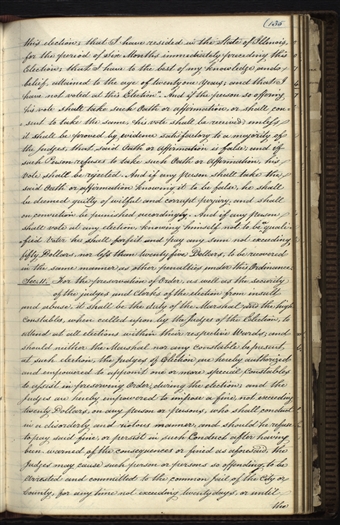 135
this election; that I have resided in the State of Illinois,
for the period of Six Months immediately preceding this
Election; that I have to the best of my knowledge and
belief, attained to the age of twenty one years; and that I
have not voted at this Election." And if the person so offering
his vote shall take such Oath or affirmation, or shall con-
sent to take the same, his vote shall be received unless
it shall be proved by evidence satisfactory to a majority of
the Judges, that said Oath or Affirmation is false; and if
such Person refuses to take such Oath or Affirmation, his
vote shall be rejected. And if any person shall take the
said Oath or affirmation knowing it to be false, he shall
be deemed guilty of wilful and corrupt perjury, and shall
on conviction be punished accordingly. And if any person
shall vote at any election, knowing himself not to be quali-
fied Voter he shall forfeit and pay any sum not exceeding
fifty Dollars, nor less than twenty five Dollars, to be recovered
in the same manner as other penalties under this Ordinance.
Sec. 11. For the preservation of Order, as well as the security
of the judges and Clerks of the election from insult
and abuse, it shall be the duty of the Marshal and the high
Constables, when called upon by the Judges of the Election, to
attend at all elections within their respective Wards, and
should neither the Marshal nor any constable be present,
at such election, the judges of Election are hereby authorized
and empowered to appoint one or more special Constables
to assist in preserving Order, during the election; and the
judges are hereby empowered to impose a fine, not exceeding
twenty Dollars, on any person or persons, who shall conduct
in a disorderly, and riotous manner, and should he refuse
to pay said fine, or persist in such Conduct after having
been warned of the consequences or fined as aforesaid, the
Judges may cause such person or persons so offending, to be
Arrested and committed to the common jail of the City or
County, for any time not exceeding twenty days, or until
the